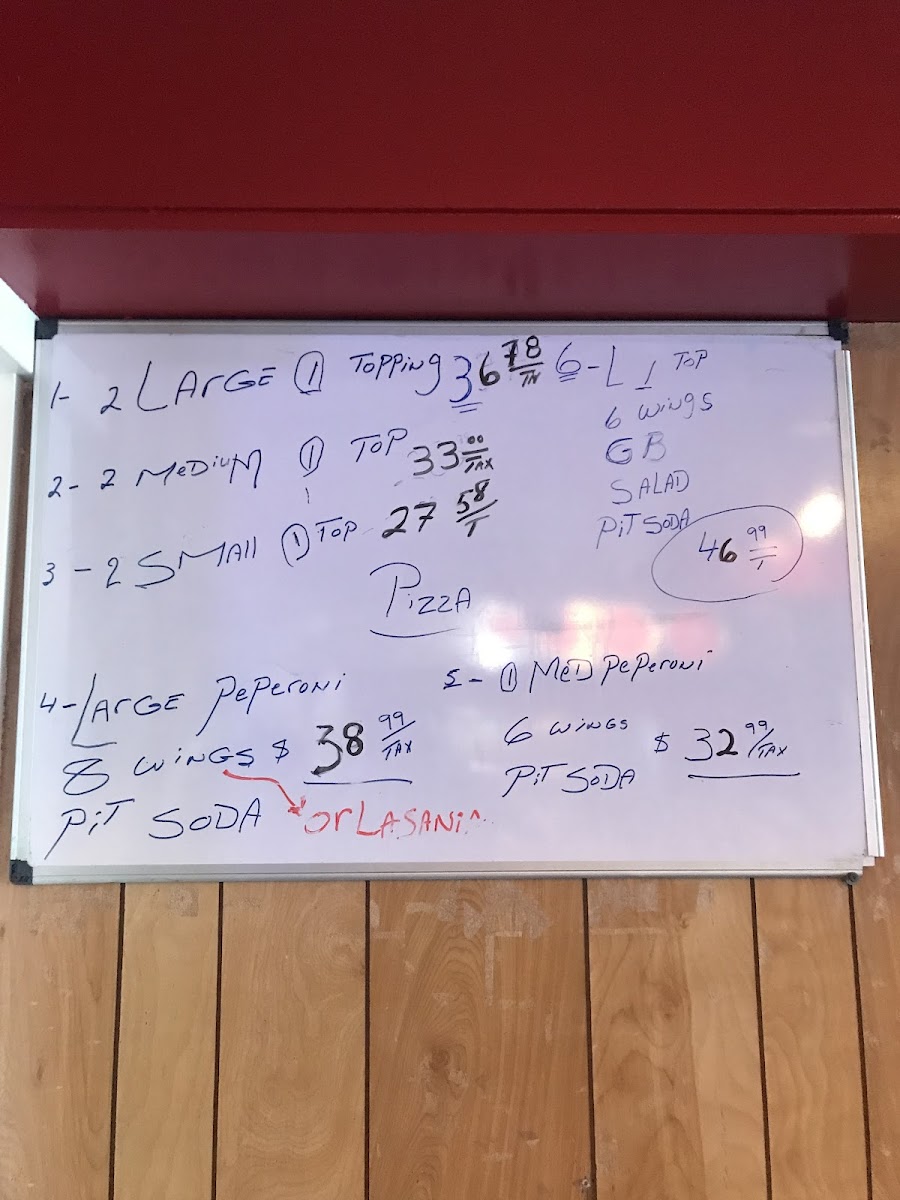 1- 2 LARGE ① TOPPING 36 78/TX
2- 2 MEDIUM ① TOP 33 00/TAX
3 - 2 SMAll ① TOP 27 58/T
PIZZA
4- LARGE PEPERONI
8 WINGS $ 38 99/TAX
PIT SODA or LASANIA
5 - ① MED PEPERONI
6 WINGS $ 32 99/TAX
PIT SODA
6 - L 1 TOP
6 WINGS
GB
SALAD
PIT SODA
46 99/T